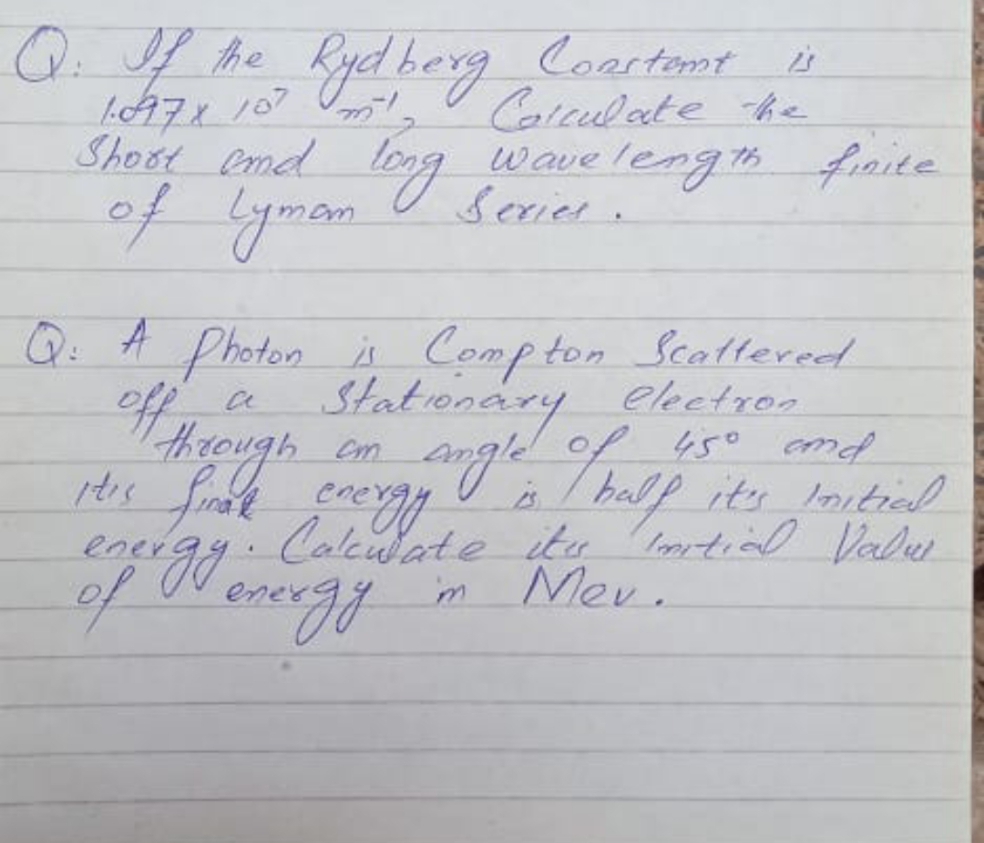 Q: If the Rydberg Constant is
1.097x 10⁷ m⁻¹, Calculate the
Short and long wavelength finite
of Lyman Series.
Q: A Photon is Compton Scattered
off a Stationary electron
through an angle of 45° and
it's final energy is half it's initial
energy. Calculate its initial Value
of energy in Mev.